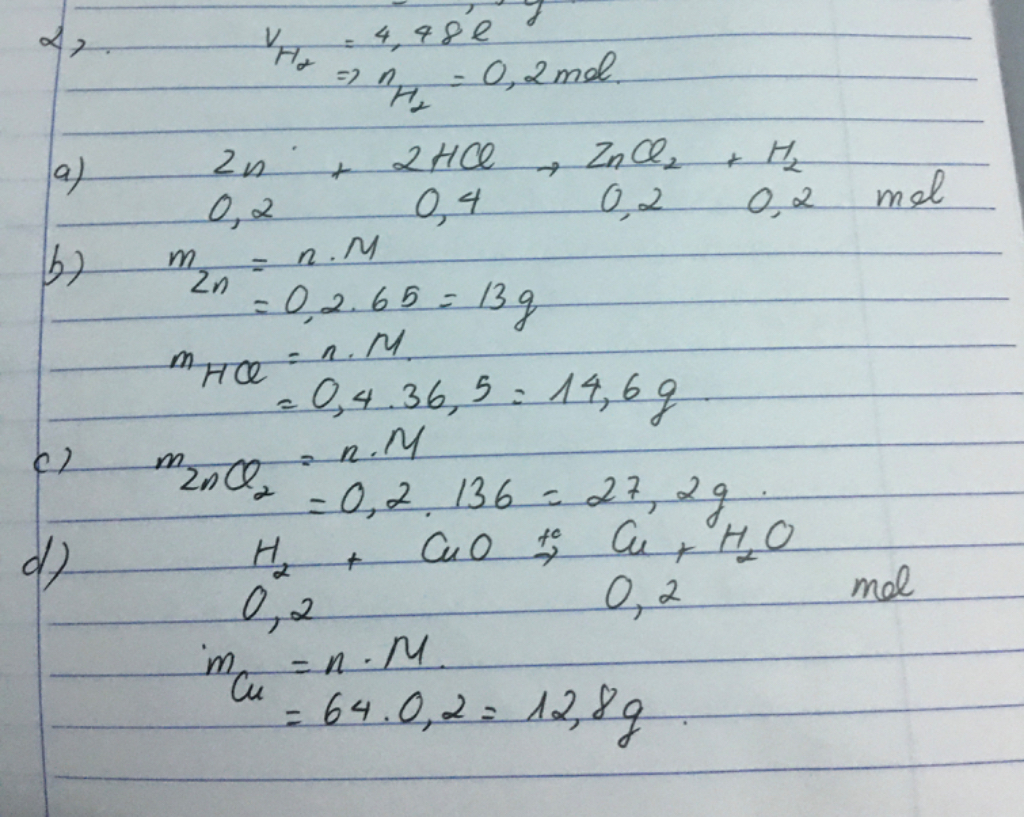 2,. V_H₂ = 4,48l
=> n_H₂ = 0,2 mol.
a) Zn + 2HCl → ZnCl₂ + H₂
0,2 0,4 0,2 0,2 mol
b) m_Zn = n.M
= 0,2.65 = 13g
m_HCl = n.M.
= 0,4.36,5 = 14,6g.
c) m_ZnCl₂ = n.M
= 0,2.136 = 27,2g.
d) H₂ + CuO t°→ Cu + H₂O
0,2 0,2 mol
m_Cu = n.M.
= 64.0,2 = 12,8g.